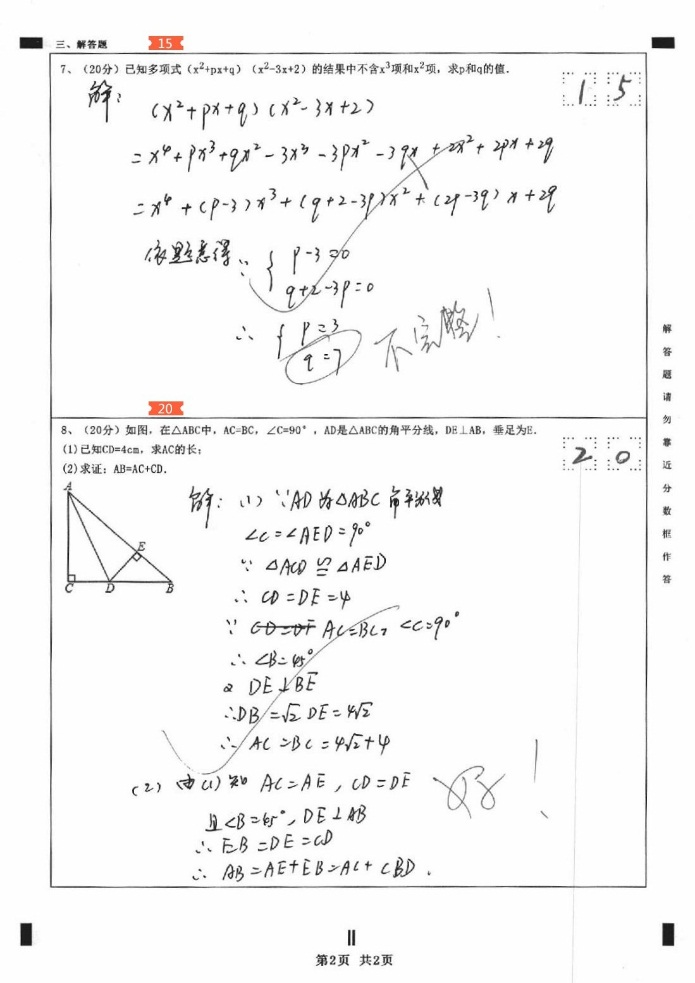 三、解答题 15
7、(20分)已知多项式(x²+px+q)(x²-3x+2)的结果中不含x³项和x²项,求p和q的值.
15
解:
(x²+px+q)(x²-3x+2)
=x⁴+px³+qx²-3x³-3px²-3qx+2x²+2px+2q
=x⁴+(p-3)x³+(q+2-3p)x²+(2p-3q)x+2q
依题意得∵{p-3=0
q+2-3p=0
∴{p=3
q=7
不完整!
20
8、(20分)如图,在△ABC中,AC=BC,∠C=90°,AD是△ABC的角平分线,DE⊥AB,垂足为E.
(1)已知CD=4cm,求AC的长;
(2)求证:AB=AC+CD.
20
A
E
C D B
解:(1)∵AD为△ABC角平分线
∠C=∠AED=90°
∵△ACD≌△AED
∴CD=DE=4
∵AC=BC,∠C=90°
∴∠B=45°
DE⊥BE
∴DB=√2DE=4√2
∴AC=BC=4√2+4
(2)由(1)知AC=AE,CD=DE
且∠B=45°,DE⊥AB
∴EB=DE=CD
∴AB=AE+EB=AC+CD.
好!
解答题请勿靠近分数框作答
第2页 共2页